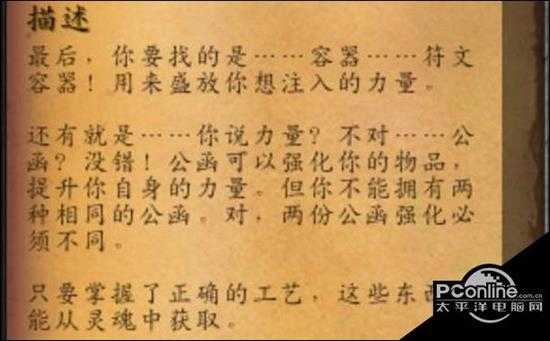 描述
最后，你要找的是……容器……符文
容器！用来盛放你想注入的力量。
还有就是……你说力量？不对……公
函？没错！公函可以强化你的物品，
提升你自身的力量。但你不能拥有两
种相同的公函。对，两份公函强化必
须不同。
只要掌握了正确的工艺，这些东
能从灵魂中获取。
PConline
.com.cn
太平洋电脑网